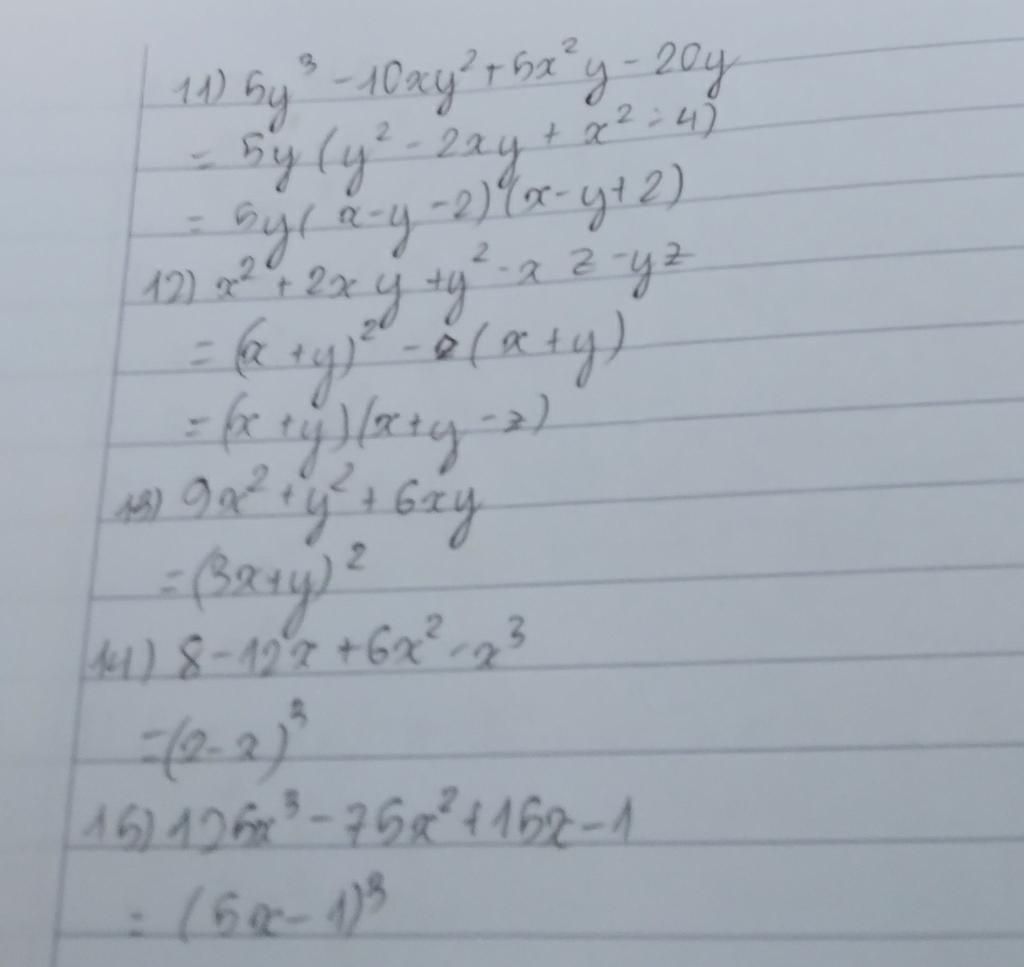 11) 5y³ - 10xy² + 5x²y - 20y
= 5y (y² - 2xy + x² - 4)
= 5y (x - y - 2) (x - y + 2)
12) x² + 2xy + y² - xz - yz
= (x + y)² - z (x + y)
= (x + y) (x + y - z)
13) 9x² + y² + 6xy
= (3x + y)²
14) 8 - 12x + 6x² - x³
= (2 - x)³
15) 125x³ - 75x² + 15x - 1
= (5x - 1)³